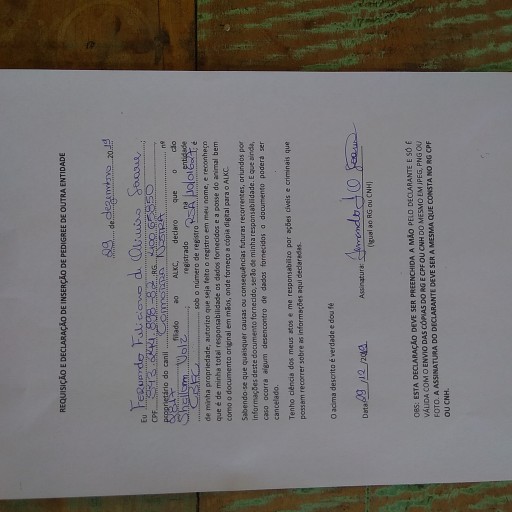 REQUISIÇÃO E DECLARAÇÃO DE INSERÇÃO DE PEDIGREE DE OUTRA ENTIDADE
29 de dezembro 2019
Eu Fernando Feliciano de Oliveira
CPF RG
proprietário do canil nº
filiado ao ALKC, declaro que o cão
Shallom Volz registrado na entidade
sob o número de registro é
de minha propriedade, autorizo que seja feito o registro em meu nome, e reconheço
que é de minha total responsabilidade os dados fornecidos e a posse do animal bem
como o documento original em mãos, onde forneço a cópia digital para o ALKC.
Sabendo-se que quaisquer causas ou consequências futuras recorrentes, oriundos por
informações deste documento fornecido, serão de minha responsabilidade. E que ainda,
caso ocorra algum desencontro de dados fornecidos o documento poderá ser
cancelado.
Tenho ciência dos meus atos e me responsabilizo por ações cíveis e criminais que
possam recorrer sobre as informações aqui declaradas.
O acima descrito é verdade e dou fé
Data: 29/12/2019 Assinatura:
(igual ao RG ou CNH)
OBS: ESTA DECLARAÇÃO DEVE SER PREENCHIDA A MÃO PELO DECLARANTE E SÓ É
VÁLIDA COM O ENVIO DAS CÓPIAS DO RG E CPF OU CNH DO MESMO EM JPEG, PNG OU
FOTO. A ASSINATURA DO DECLARANTE DEVE SER A MESMA QUE CONSTA NO RG CPF
OU CNH.